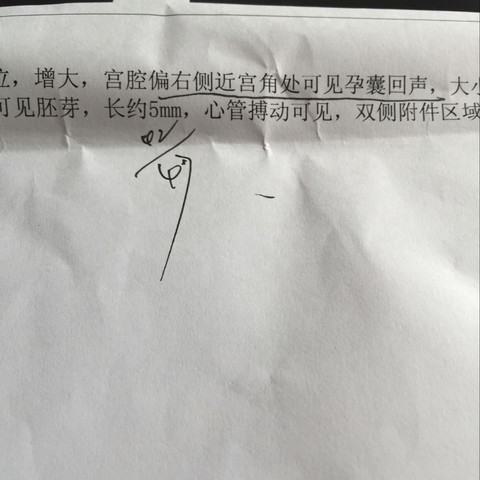 立，增大，宫腔偏右侧近宫角处可见孕囊回声，大小
可见胚芽，长约5mm，心管搏动可见，双侧附件区域